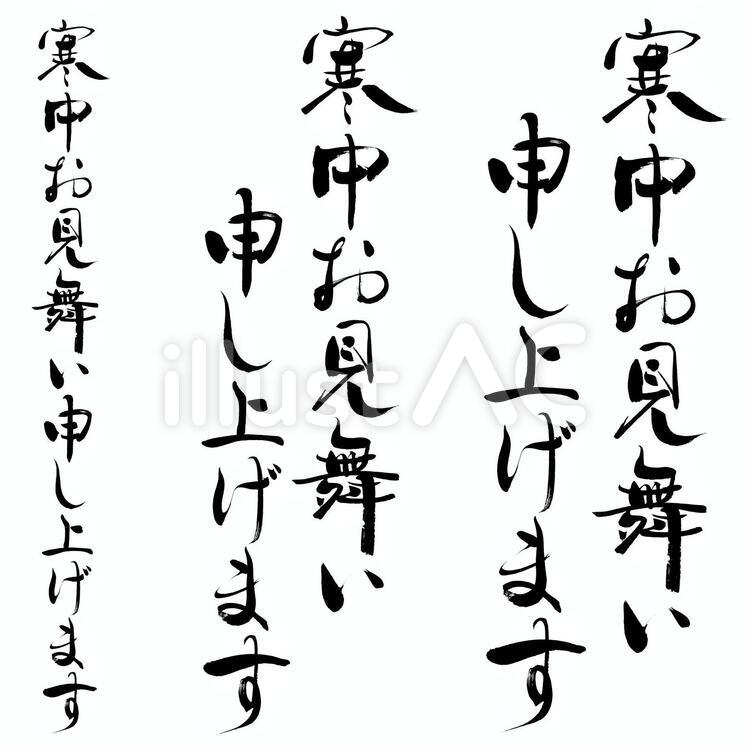 寒中お見舞い
申し上げます
寒中お見舞い
申し上げます
寒中お見舞い申し上げます
illustAC